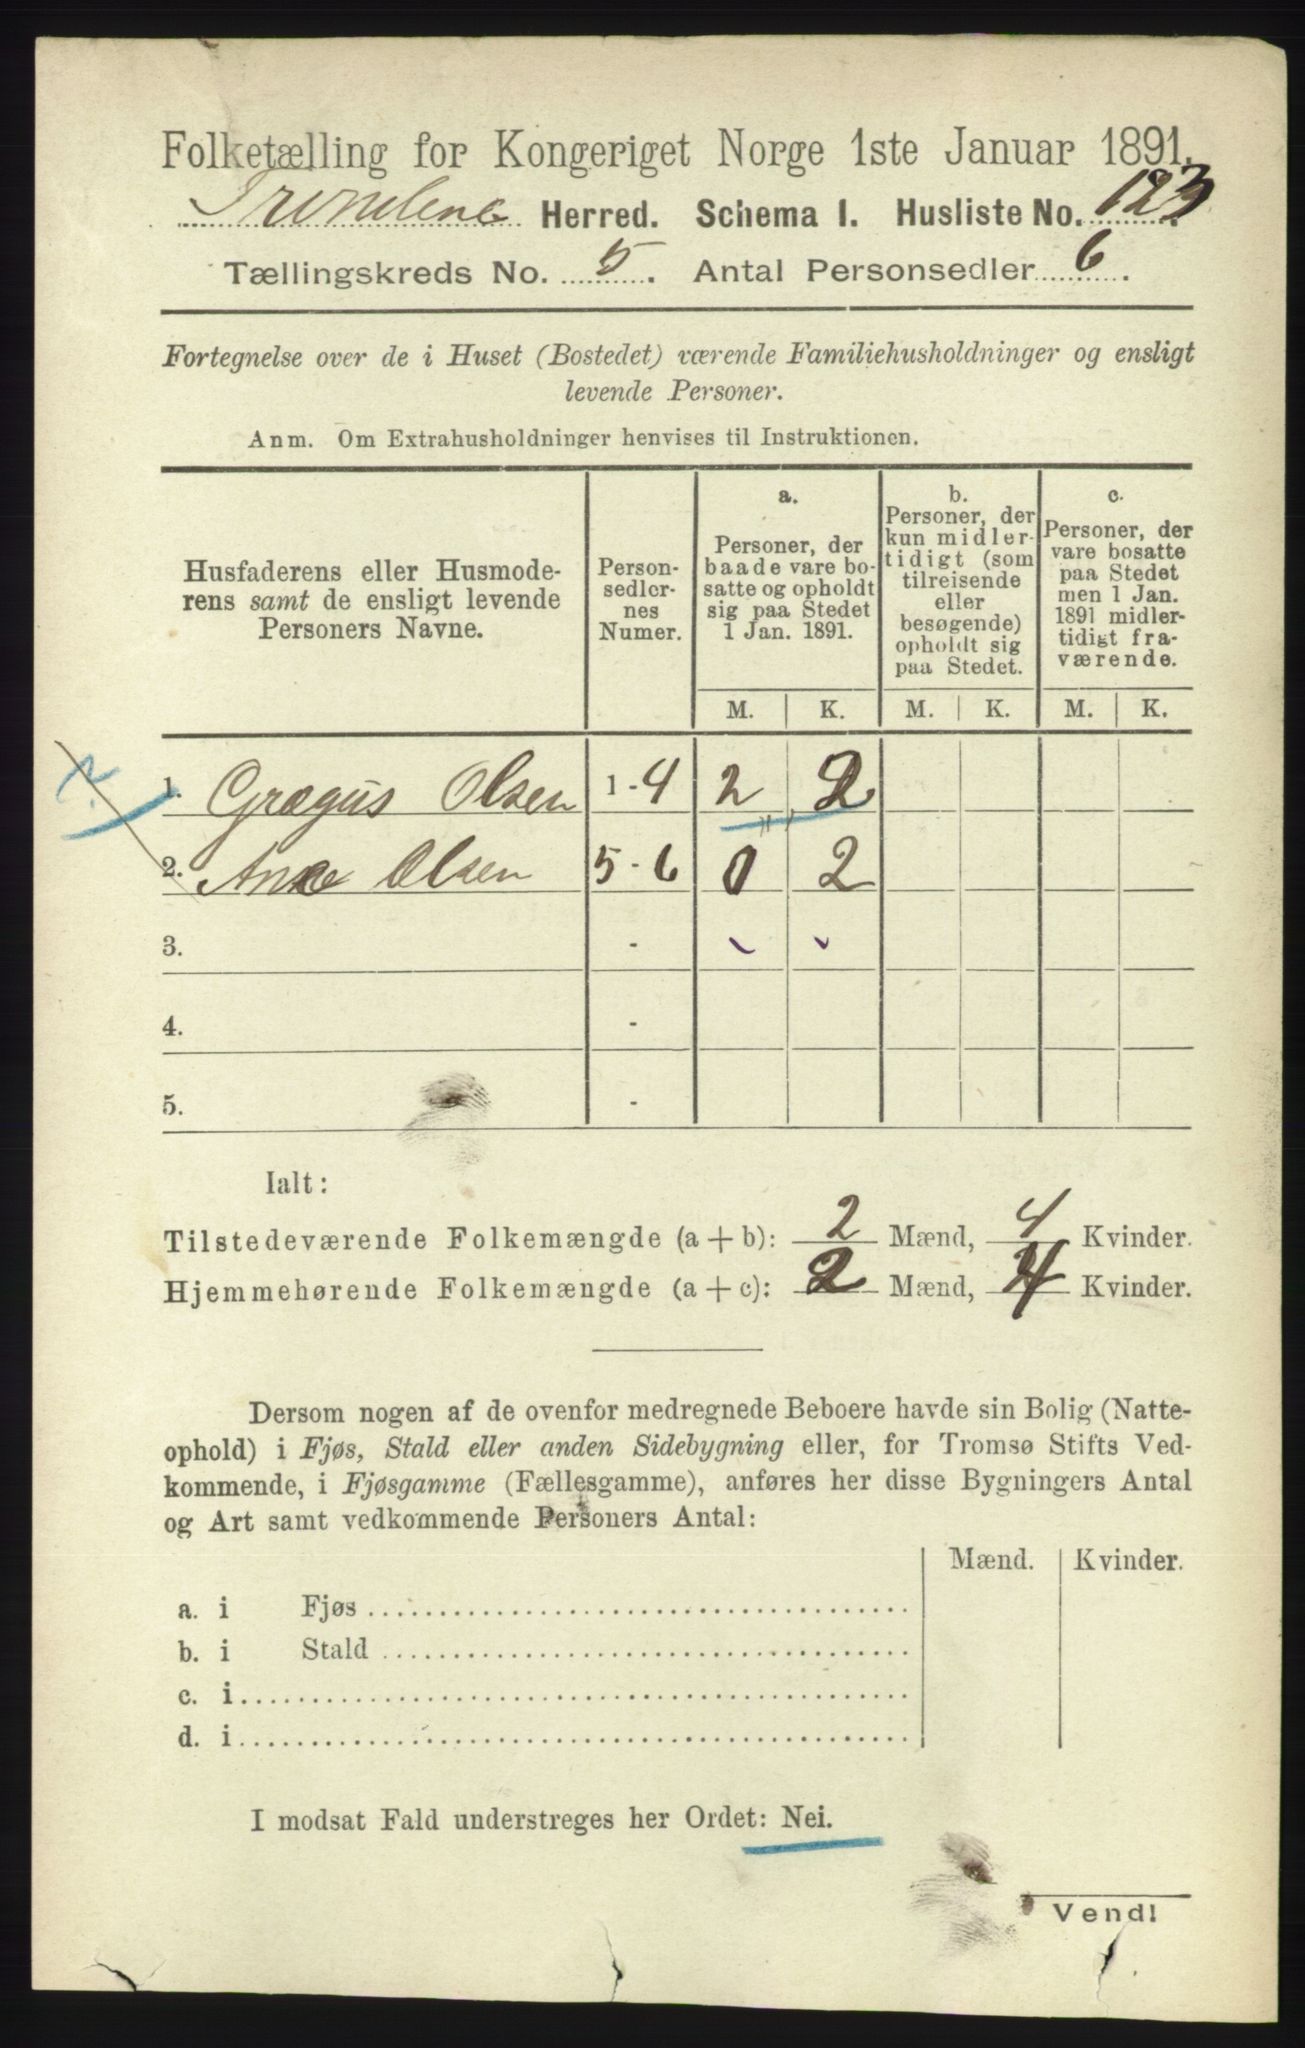 Folketælling for Kongeriget Norge 1ste Januar 1891.
Trondenes Herred. Schema I. Husliste No. 123.
Tællingskreds No. 5. Antal Personsedler 6.
Fortegnelse over de i Huset (Bostedet) værende Familiehusholdninger og ensligt
levende Personer.
Anm. Om Extrahusholdninger henvises til Instruktionen.
Husfaderens eller Husmode-
rens samt de ensligt levende
Personers Navne.
Person-
sedler-
nes
Numer.
a.
Personer, der
baade vare bo-
satte og opholdt
sig paa Stedet
1 Jan. 1891.
b.
Personer, der
kun midler-
tidigt (som
tilreisende
eller
besøgende)
opholdt sig
paa Stedet.
c.
Personer, der
vare bosatte
paa Stedet
men 1 Jan.
1891 midler-
tidigt fra-
værende.
M. K. M. K. M. K.
1. Grægus Olsen 1-4 2 2
2. Olsen 5-6 0 2
3. -
4. -
5. -
Ialt:
Tilstedeværende Folkemængde (a + b): 2 Mænd, 4 Kvinder.
Hjemmehørende Folkemængde (a + c): 2 Mænd, 4 Kvinder.
Dersom nogen af de ovenfor medregnede Beboere havde sin Bolig (Natte-
ophold) i Fjøs, Stald eller anden Sidebygning eller, for Tromsø Stifts Ved-
kommende, i Fjøsgamme (Fællesgamme), anføres her disse Bygningers Antal
og Art samt vedkommende Personers Antal:
Mænd. Kvinder.
a. i Fjøs
b. i Stald
c. i
d. i
I modsat Fald understreges her Ordet: Nei.
Vend!